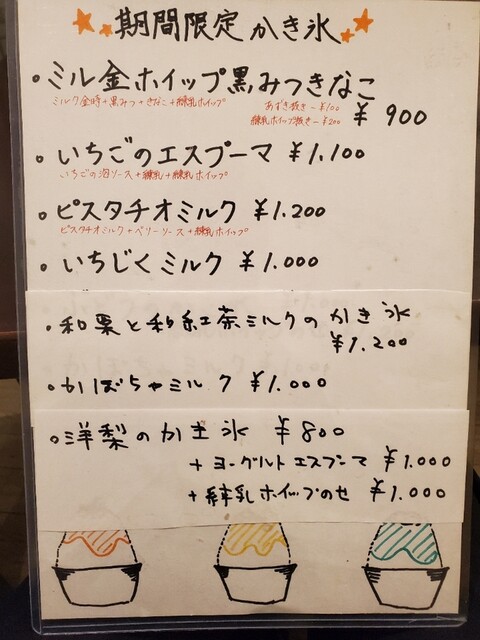 期間限定 かき氷
・ミル金ホイップ黒みつきなこ
ミルク金時+黒みつ+きなこ+練乳ホイップ
あずき抜き-¥100
練乳ホイップ抜き-¥200
¥900
・いちごのエスプーマ ¥1.100
いちごの泡ソース+練乳+練乳ホイップ
・ピスタチオミルク ¥1.200
ピスタチオミルク+ベリーソース+練乳ホイップ
・いちじくミルク ¥1.000
・和栗と和紅茶ミルクのかき氷
¥1.200
・かぼちゃミルク ¥1.000
・洋梨のかき氷 ¥800
+ヨーグルトエスプーマ ¥1.000
+練乳ホイップのせ ¥1.000